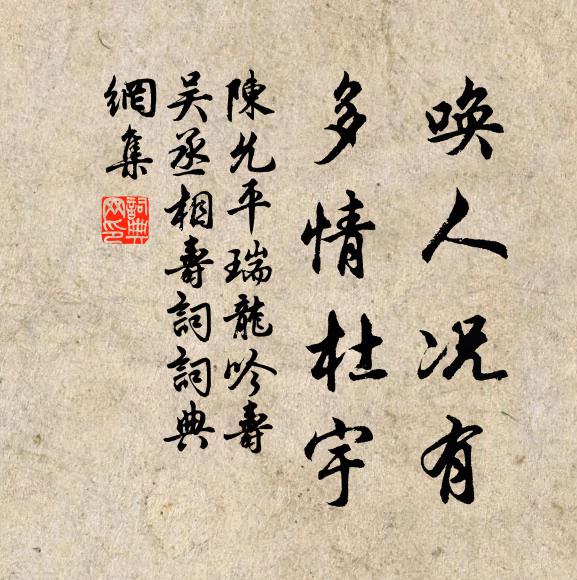 唤人况有
多情杜宇
陳允平瑞龍吟壽
吴丞相壽詞詞典
網集
詞典
网印